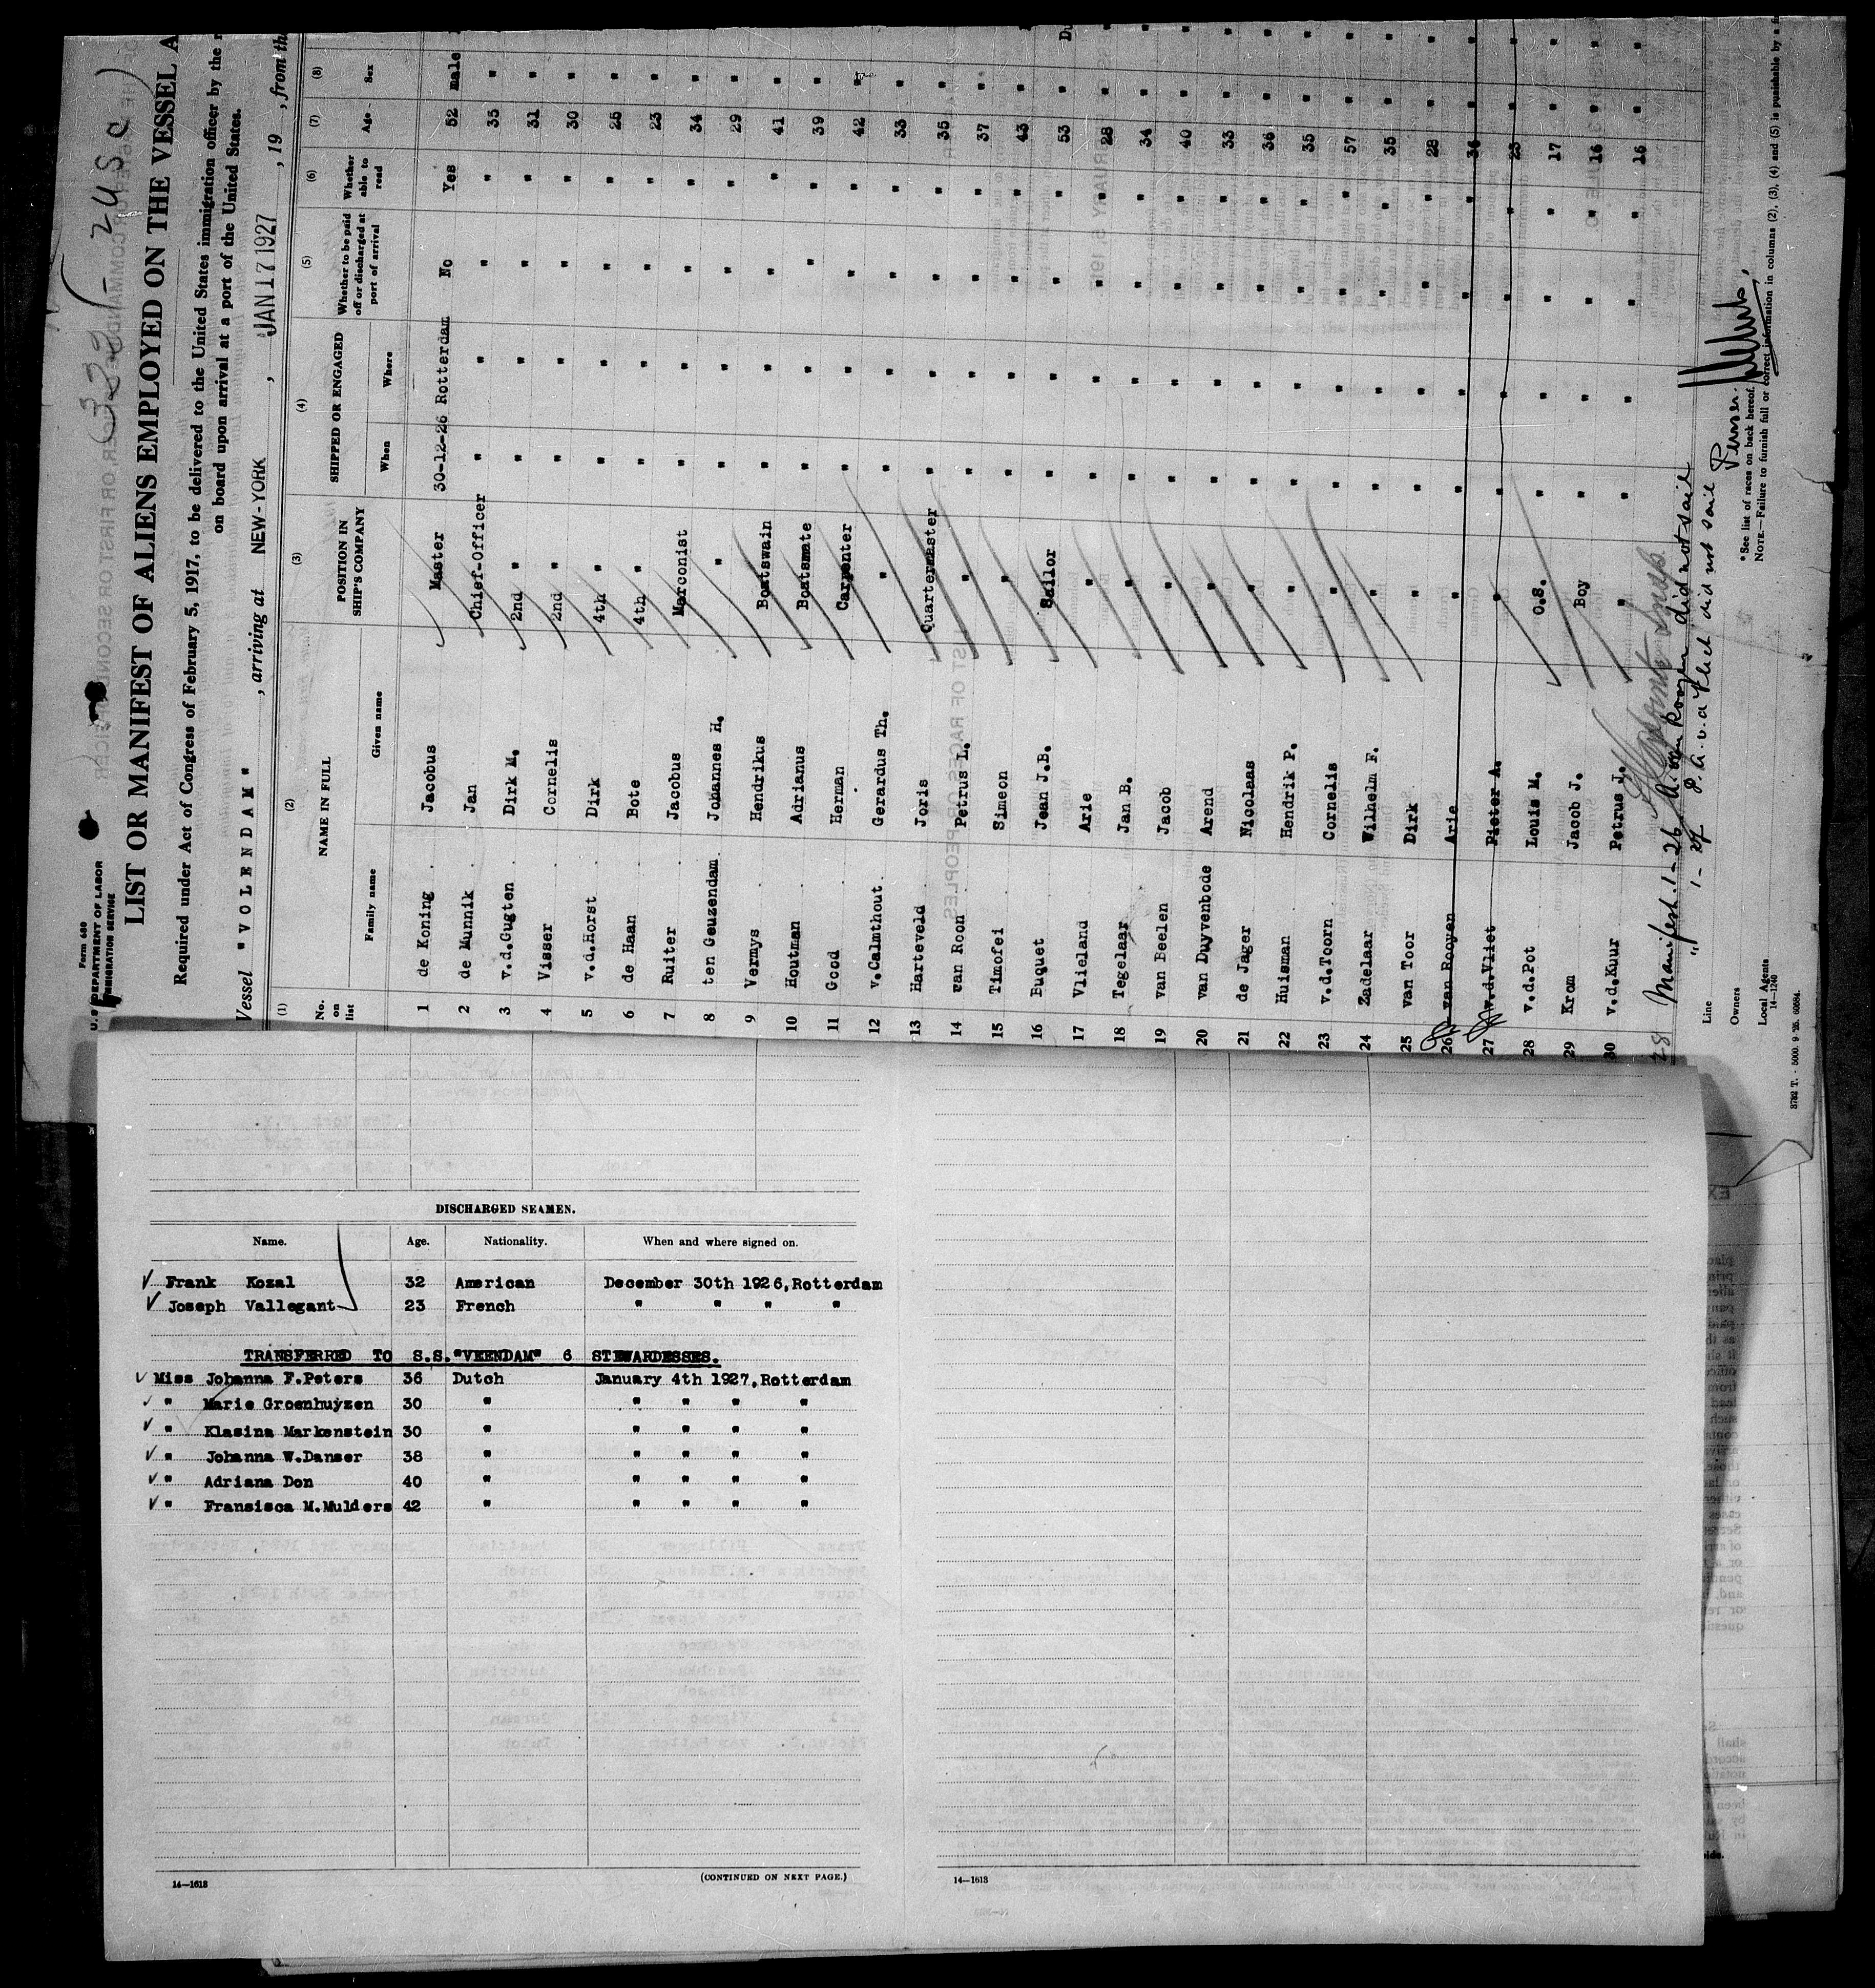 Form 680
U. S. DEPARTMENT OF LABOR
IMMIGRATION SERVICE
LIST OR MANIFEST OF ALIENS EMPLOYED ON THE VESSEL A
Required under Act of Congress of February 5, 1917, to be delivered to the United States immigration officer by the r
on board upon arrival at a port of the United States.
Vessel "VOLENDAM" , arriving at NEW-YORK , JAN 17 1927 , 19 , from th
(1) (2) (3) (4) (5) (6) (7) (8)
No. on list NAME IN FULL POSITION IN SHIP'S COMPANY SHIPPED OR ENGAGED Whether to be paid off or discharged at port of arrival Whether able to read Age Sex
Family name Given name When Where
1 de Koning Jacobus Master 30-12-26 Rotterdam No Yes 52 male
2 de Munnik Jan Chief-Officer " " " " 35 "
3 v.d.Gugten Dirk M. 2nd " " " " " 31 "
4 Visser Cornelis 2nd " " " " " 30 "
5 v.d.Horst Dirk 4th " " " " " 25 "
6 de Haan Bote 4th " " " " " 23 "
7 Ruiter Jacobus Marconist " " " " 34 "
8 ten Geuzendam Johannes H. " " " " " 29 "
9 Vermys Hendrikus Boatswain " " " " 41 "
10 Houtman Adrianus Boatsmate " " " " 39 "
11 Good Herman Carpenter " " " " 42 "
12 v.Calmthout Gerardus Th. " " " " " 33 "
13 Harteveld Joris Quartermaster " " " " 35 "
14 van Roon Petrus L. " " " " " 37 "
15 Timofei Simeon " " " " " 43 "
16 Buquet Jean J.B. Sailor " " " " 53 "
17 Vlieland Arie " " " " " 28 "
18 Tegelaar Jan B. " " " " " 34 "
19 van Beelen Jacob " " " " " 40 "
20 van Duyvenbode Arend " " " " " 33 "
21 de Jager Nicolaas " " " " " 36 "
22 Huisman Hendrik P. " " " " " 35 "
23 v.d.Toorn Cornelis " " " " " 57 "
24 Zadelaar Wilhelm F. " " " " " 35 "
25 van Toor Dirk " " " " " 28 "
26 van Rooyen Arie " " " " " 34 "
27 v.d.Vliet Pieter A. " " " " " 23 "
28 v.d.Pot Louis M. O.S. " " " " 17 "
29 Krom Jacob J. Boy " " " " 16 "
30 v.d.Kuur Petrus J. " " " " " 16 "
28 Manifest 1-26 A. van Rooyen did not sail
" 1-27 P. A. v. d. Vliet did not sail
Purser.
Line
Owners
Local Agents
14—1240
*See list of races on back hereof.
NOTE.—Failure to furnish full or correct information in columns (2), (3), (4) and (5) is punishable by a fi
DISCHARGED SEAMEN.
Name. Age. Nationality. When and where signed on.
Frank Kozal 32 American December 30th 1926,Rotterdam
Joseph Vallegant 23 French " " " "
TRANSFERRED TO S.S."VEENDAM" 6 STEWARDESSES.
Miss Johanna F.Peters 36 Dutch January 4th 1927,Rotterdam
" Marie Groenhuyzen 30 " " " " "
" Klasina Markenstein 30 " " " " "
" Johanna W.Danser 38 " " " " "
" Adriana Don 40 " " " " "
" Fransisca M.Mulders 42 " " " " "
14—1613 (CONTINUED ON NEXT PAGE.)
14—1613